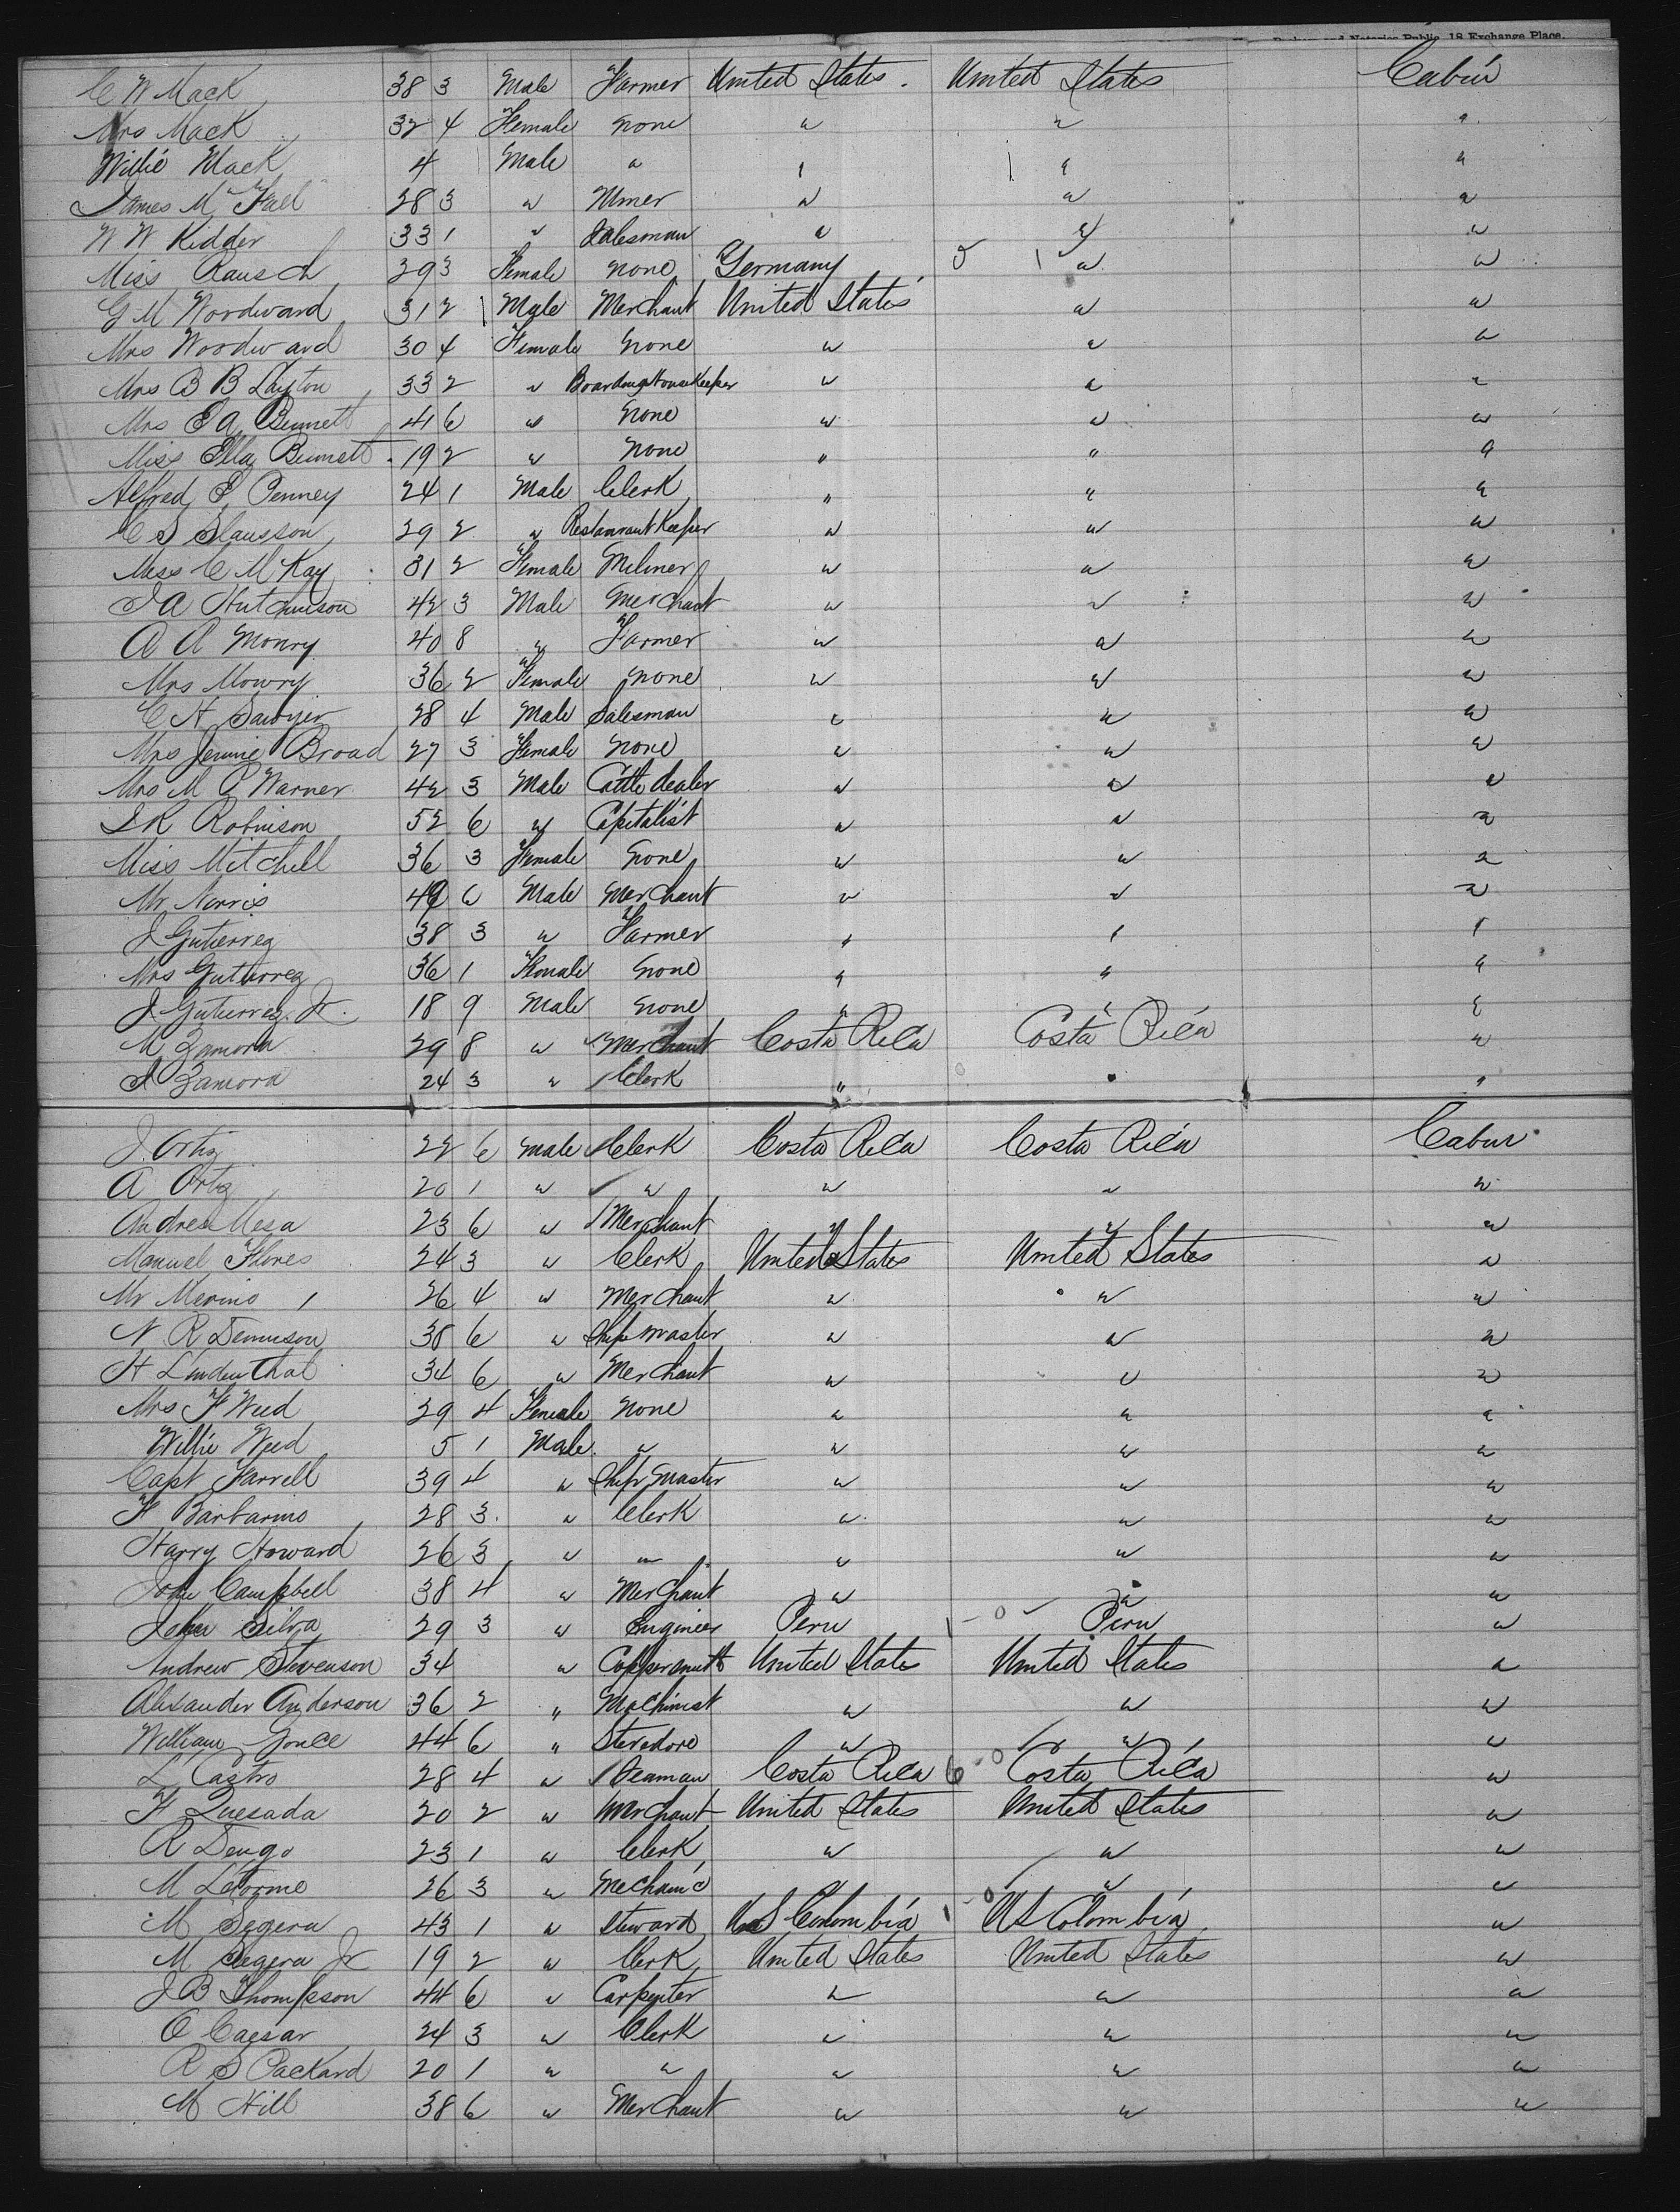 18 Exchange Place.
C W Mack 38 3 Male Farmer United States. United States Cabin
Mrs Mack 32 4 Female none " " "
Willie Mack 4 Male " " " "
James McFall 28 3 " Miner " " "
W W Kidder 33 1 " Salesman " " "
Miss Rausch 29 3 Female none Germany " "
G M Woodward 31 2 Male Merchant United States " "
Mrs Woodward 30 4 Female none " " "
Mrs B B Layton 33 2 " Boarding House Keeper " " "
Mrs E A Bennett 41 6 " none " " "
Miss Ella Bennett 19 2 " none " " "
Alfred E Penney 24 1 Male Clerk " " "
C S Slausson 29 2 " Restaurant Keeper " " "
Miss C McKay 31 2 Female Miliner " " "
J A Hutchinson 42 3 Male Merchant " " "
A A Monry 40 8 " Farmer " " "
Mrs Mowry 36 2 Female none " " "
C H Sawyer 28 4 Male Salesman " " "
Mrs Jennie Broad 27 3 Female none " " "
Mrs M P Warner 42 3 Male Cattle dealer " " "
S R Robinson 52 6 " Capitalist " " "
Miss Mitchell 36 3 Female none " " "
Mr Norris 49 6 Male Merchant " " "
J Gutierrez 38 3 " Farmer " " "
Mrs Gutierrez 36 1 Female none " " "
J. Gutierrez. Jr. 18 9 Male none " " "
M Zamora 29 8 " Merchant Costa Rica Costa Rica "
J Zamora 24 3 " Clerk " " "
J. Ortiz 22 6 male Clerk Costa Rica Costa Rica Cabin
A Ortiz 20 1 " " " " "
Andres Mesa 23 6 " Merchant " " "
Manuel Flores 24 3 " Clerk United States United States "
Mr Merino 26 4 " Merchant " " "
N R Dennison 38 6 " Ship master " " "
H Lindenthal 34 6 " Merchant " " "
Mrs F Weed 29 4 Female none " " "
Willie Weed 5 1 Male " " " "
Capt Farrell 39 4 " Ship master " " "
F Barbarino 28 3 " Clerk " " "
Harry Howard 26 3 " " " " "
John Campbell 38 4 " Merchant " " "
John Silva 29 3 " Engineer Peru Peru "
Andrew Stevenson 34 " Coppersmith United States United States "
Alexander Anderson 36 2 " Machinist " " "
William Jonce 44 6 " Stevedore " " "
L Castro 28 4 " Seaman Costa Rica Costa Rica "
F Quesada 20 2 " Merchant United States United States "
R Dengo 23 1 " Clerk " " "
M Letorme 26 3 " Mechanic " " "
M Segera 43 1 " Steward U S Colombia U S Colombia "
M Segera Jr 19 2 " Clerk United States United States "
J B Thompson 44 6 " Carpenter " " "
O Caesar 24 3 " Clerk " " "
R S Packard 20 1 " " " " "
M Hill 38 6 " Merchant " " "